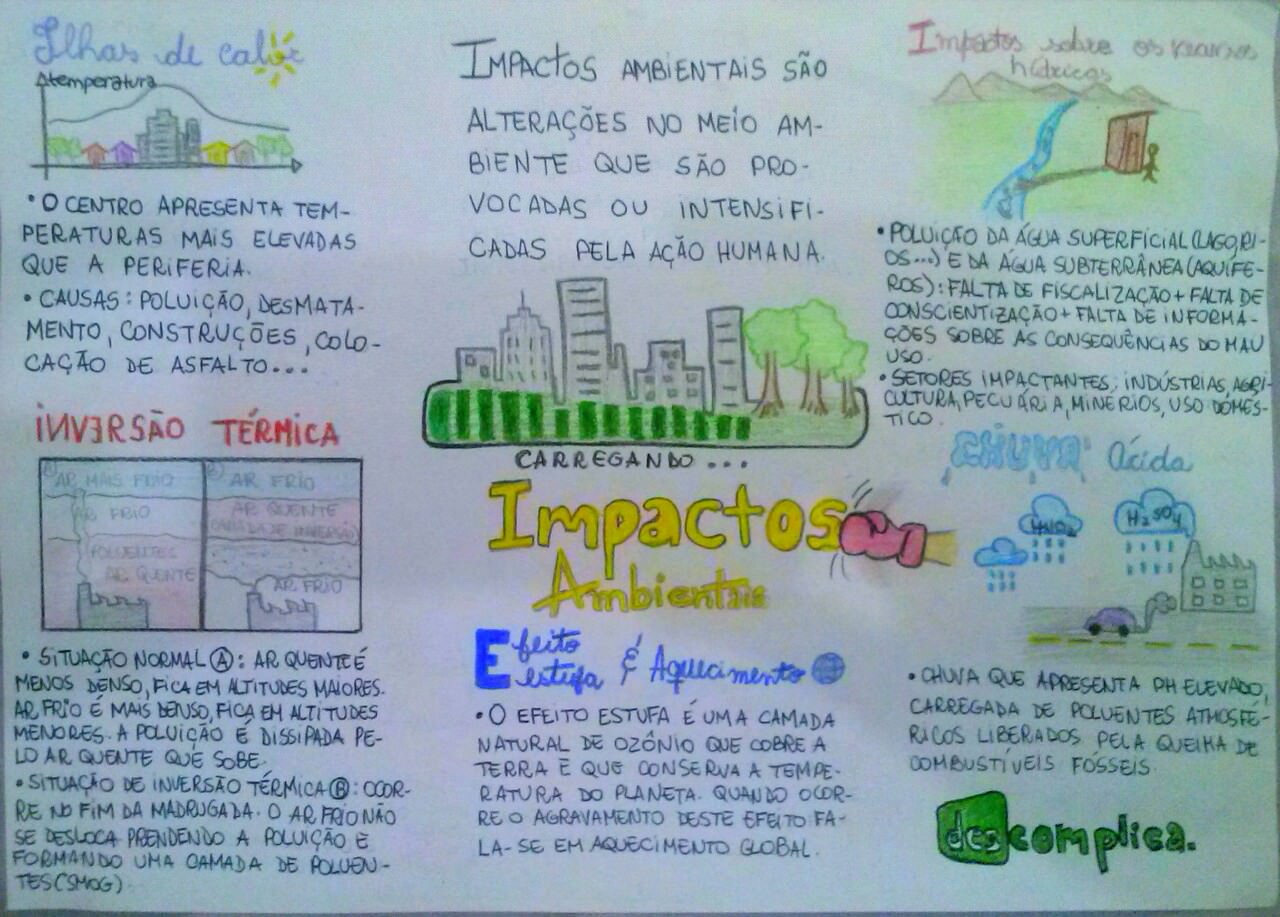 Ilhas de calor
temperatura
• O CENTRO APRESENTA TEM-
PERATURAS MAIS ELEVADAS
QUE A PERIFERIA.
• CAUSAS: POLUIÇÃO, DESMATA-
MENTO, CONSTRUÇÕES, COLO-
CAÇÃO DE ASFALTO...
INVERSÃO TÉRMICA
AR MAIS FRIO
AR FRIO
POLUENTES
AR QUENTE
AR FRIO
AR QUENTE
(CAMADA DE INVERSÃO)
AR FRIO
• SITUAÇÃO NORMAL (A): AR QUENTE É
MENOS DENSO, FICA EM ALTITUDES MAIORES.
AR FRIO É MAIS DENSO, FICA EM ALTITUDES
MENORES. A POLUIÇÃO É DISSIPADA PE-
LO AR QUENTE QUE SOBE.
• SITUAÇÃO DE INVERSÃO TÉRMICA (B): OCOR-
RE NO FIM DA MADRUGADA. O AR FRIO NÃO
SE DESLOCA PRENDENDO A POLUIÇÃO E
FORMANDO UMA CAMADA DE POLUEN-
TES (SMOG)
IMPACTOS AMBIENTAIS SÃO
ALTERAÇÕES NO MEIO AM-
BIENTE QUE SÃO PRO-
VOCADAS OU INTENSIFI-
CADAS PELA AÇÃO HUMANA.
CARREGANDO...
Impactos
Ambientais
Efeito
estufa & Aquecimento
• O EFEITO ESTUFA É UMA CAMADA
NATURAL DE OZÔNIO QUE COBRE A
TERRA E QUE CONSERVA A TEMPE-
RATURA DO PLANETA. QUANDO OCOR-
RE O AGRAVAMENTO DESTE EFEITO FA-
LA-SE EM AQUECIMENTO GLOBAL.
Impactos sobre os recursos
hídricos
• POLUIÇÃO DA ÁGUA SUPERFICIAL (LAGO, RI-
OS...) E DA ÁGUA SUBTERRÂNEA (AQUÍFE-
ROS): FALTA DE FISCALIZAÇÃO + FALTA DE
CONSCIENTIZAÇÃO + FALTA DE INFORMA-
ÇÕES SOBRE AS CONSEQUÊNCIAS DO MAU
USO.
• SETORES IMPACTANTES: INDÚSTRIAS, AGRI-
CULTURA, PECUÁRIA, MINÉRIOS, USO DOMÉS-
TICO.
CHUVA Ácida
H₂SO₄
• CHUVA QUE APRESENTA PH ELEVADO,
CARREGADA DE POLUENTES ATMOSFÉ-
RICOS LIBERADOS PELA QUEIMA DE
COMBUSTÍVEIS FÓSSEIS.
descomplica.